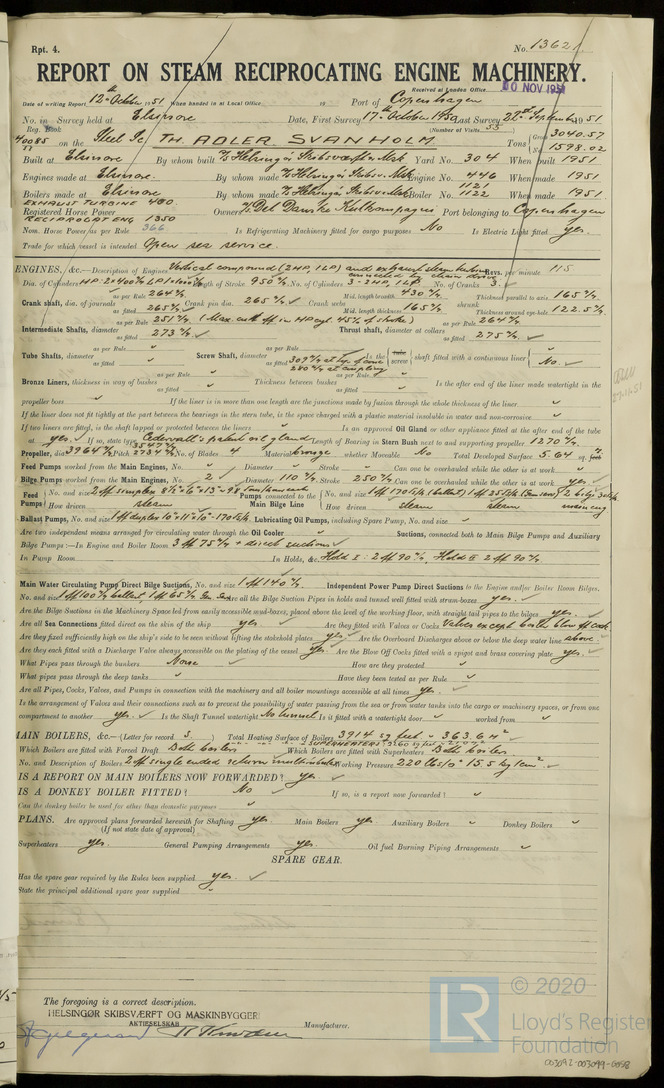 Rpt. 4. No. 1362
REPORT ON STEAM RECIPROCATING ENGINE MACHINERY.
Received at London Office 10 NOV 1951
Date of writing Report 12th October 1951 When handed in at Local Office 19 Port of Copenhagen
No. in Reg. Book Survey held at Elsinore Date, First Survey 17th October 1950 Last Survey 22nd September 1951
(Number of Visits 53)
40085 on the Steel Sc TH. ADLER SVANHOLM Tons Gross 3040.57 Net 1598.02
Built at Elsinore By whom built A/S Helsingørs Skibsværft og Msk. Yard No. 304 When built 1951
Engines made at Elsinore By whom made A/S Helsingørs Skibsv. Msk. Engine No. 446 When made 1951
Boilers made at Elsinore By whom made A/S Helsingørs Skibsv. Msk. Boiler No. 1121 1122 When made 1951
EXHAUST TURBINE 400
Registered Horse Power RECIPROCAT ENG 1350 Owners A/S Det Danske Kulkompagni Port belonging to Copenhagen
Nom. Horse Power as per Rule 366 Is Refrigerating Machinery fitted for cargo purposes No Is Electric Light fitted yes.
Trade for which vessel is intended Open sea service.
ENGINES, &c.—Description of Engines Vertical compound (2HP, 1LP) and exhaust steam turbine connected by chain drive Revs. per minute 115
Dia. of Cylinders HP: 2×400 LP 1× Length of Stroke 950 No. of Cylinders 3 - 2HP, 1LP No. of Cranks 3.
Crank shaft, dia. of journals as per Rule 264 as fitted 265 Crank pin dia. 265 Crank webs Mid. length breadth 430 Mid. length thickness 165 shrunk Thickness parallel to axis 165 Thickness around eye-hole 122.5
Intermediate Shafts, diameter as per Rule 251 (Max. cut off in HP cyl. 45% of stroke) as fitted 273 Thrust shaft, diameter at collars as per Rule 264 as fitted 275
Tube Shafts, diameter as per Rule as fitted Screw Shaft, diameter as per Rule as fitted 309 at top of cone 280 at coupling Is the tube screw shaft fitted with a continuous liner No
Bronze Liners, thickness in way of bushes as per Rule as fitted Thickness between bushes as per Rule as fitted Is the after end of the liner made watertight in the
propeller boss If the liner is in more than one length are the junctions made by fusion through the whole thickness of the liner
If the liner does not fit tightly at the part between the bearings in the stern tube, is the space charged with a plastic material insoluble in water and non-corrosive
If two liners are fitted, is the shaft lapped or protected between the liners Is an approved Oil Gland or other appliance fitted at the after end of the tube
shaft yes. If so, state type Cedervall's patent oil gland Length of Bearing in Stern Bush next to and supporting propeller 1270
Propeller, dia. 3964 Pitch 3547 2734 No. of Blades 4 Material bronze whether Moveable No Total Developed Surface 5.64 sq. feet
Feed Pumps worked from the Main Engines, No. Diameter Stroke Can one be overhauled while the other is at work
Bilge Pumps worked from the Main Engines, No. 2 Diameter 110 Stroke 250 Can one be overhauled while the other is at work
Feed Pumps No. and size 2 off simplex How driven steam Pumps connected to the Main Bilge Line No. and size 1 off 170 t/h (ballast) 1 off 25 t/h How driven steam steam main eng
Ballast Pumps, No. and size 1 off duplex 10"×11"×10" - 170 t/h. Lubricating Oil Pumps, including Spare Pump, No. and size
Are two independent means arranged for circulating water through the Oil Cooler Suctions, connected both to Main Bilge Pumps and Auxiliary
Bilge Pumps:—In Engine and Boiler Room 3 off 75 + direct suctions
In Pump Room In Holds, &c. Hold I: 2 off 90, Hold II 2 off 90.
Main Water Circulating Pump Direct Bilge Suctions, No. and size 1 off 140 Independent Power Pump Direct Suctions to the Engine and/or Boiler Room Bilges,
No. and size 1 off 100 ballast 1 off 65 Gen. Serv. Are all the Bilge Suction Pipes in holds and tunnel well fitted with strum-boxes yes.
Are the Bilge Suctions in the Machinery Space led from easily accessible mud-boxes, placed above the level of the working floor, with straight tail pipes to the bilges yes.
Are all Sea Connections fitted direct on the skin of the ship yes Are they fitted with Valves or Cocks Valves except boiler blow off cocks
Are they fixed sufficiently high on the ship's side to be seen without lifting the stokehold plates yes Are the Overboard Discharges above or below the deep water line above
Are they each fitted with a Discharge Valve always accessible on the plating of the vessel yes. Are the Blow Off Cocks fitted with a spigot and brass covering plate yes.
What Pipes pass through the bunkers None How are they protected
What pipes pass through the deep tanks Have they been tested as per Rule
Are all Pipes, Cocks, Valves, and Pumps in connection with the machinery and all boiler mountings accessible at all times yes.
Is the arrangement of Valves and their connections such as to prevent the possibility of water passing from the sea or from water tanks into the cargo or machinery spaces, or from one
compartment to another yes. Is the Shaft Tunnel watertight No tunnel Is it fitted with a watertight door worked from
MAIN BOILERS, &c.—(Letter for record S.) Total Heating Surface of Boilers 3914 sq feet = 363.6 m²
Which Boilers are fitted with Forced Draft Both boilers Which Boilers are fitted with Superheaters Both boilers
No. and Description of Boilers 2 off single ended return multitubular Working Pressure 220 lbs/□" 15.5 kg/cm²
IS A REPORT ON MAIN BOILERS NOW FORWARDED? yes.
IS A DONKEY BOILER FITTED? No If so, is a report now forwarded?
Can the donkey boiler be used for other than domestic purposes
PLANS. Are approved plans forwarded herewith for Shafting yes. Main Boilers yes Auxiliary Boilers Donkey Boilers
(If not state date of approval)
Superheaters yes. General Pumping Arrangements yes. Oil fuel Burning Piping Arrangements
SPARE GEAR.
Has the spare gear required by the Rules been supplied yes.
State the principal additional spare gear supplied
The foregoing is a correct description.
HELSINGØR SKIBSVÆRFT OG MASKINBYGGERI
AKTIESELSKAB
Manufacturer.
LR
© 2020
Lloyd's Register
Foundation
003092-003099-0058